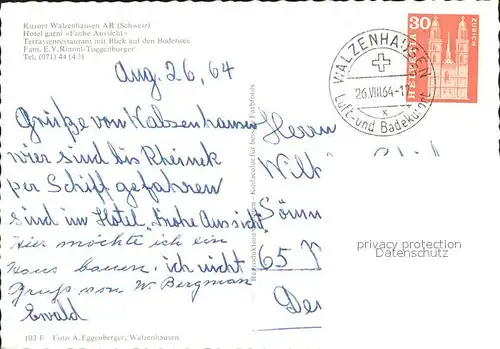 Kurort Walzenhausen AR (Schweiz)
Hotel garni «Frohe Aussicht»
Terrassenrestaurant mit Blick auf den Bodensee
Fam. E.Y. Rimml-Toggenburger
Tel. (071) 44 14 31
Aug. 26, 64
Grüße von Walzenhausen
wier sind bis Rheinek
per Schiff gefahren
sind im Hotel „Frohe Aussicht"
Hier möchte ich ein
Haus bauen, ich nicht
gruß von W. Bergman
Ewald
103 F Foto A. Eggenberger, Walzenhausen
WALZENHAUSEN
26.VIII.64-1
x
Luft- und Badekurort
30
HELVETIA
ZÜRICH
Herrn
Wilh
65
privacy protection
Datenschutz